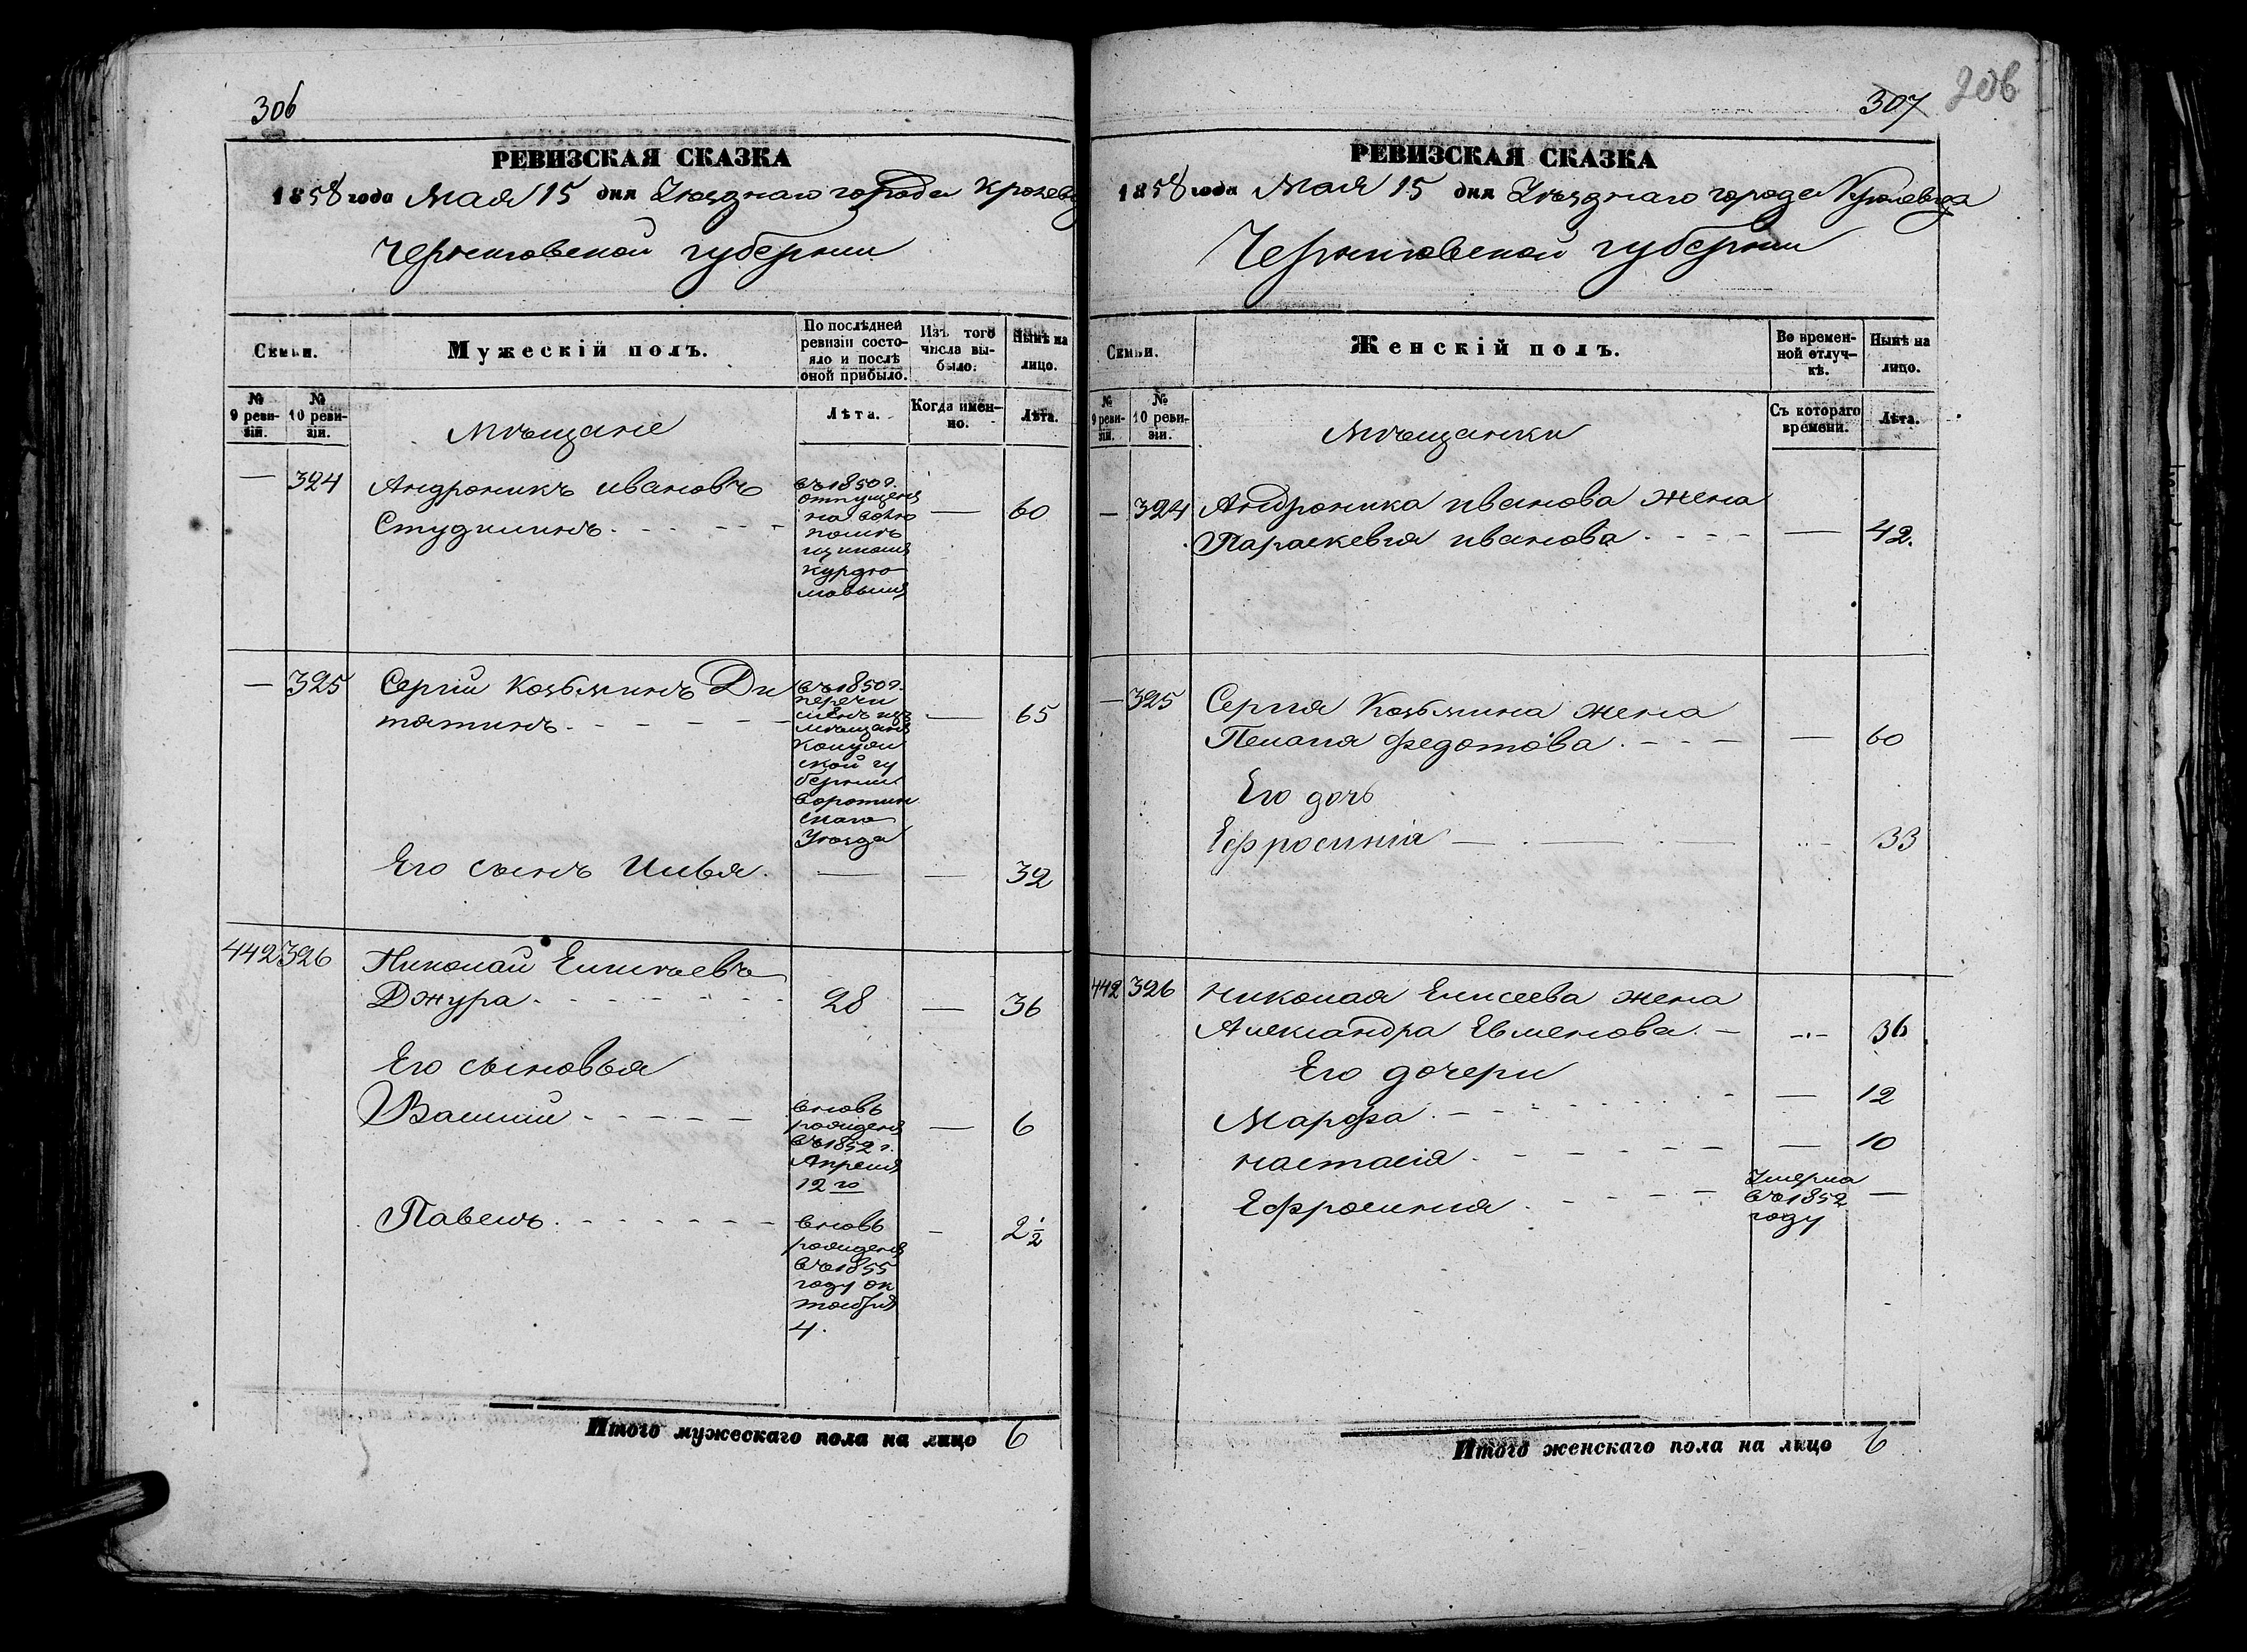 306
РЕВИЗСКАЯ СКАЗКА
1858 года Мая 15 дня Уѣзднаго города Кролевц
Черниговской губернии
Семьи.
Мужескій полъ.
По послѣдней ревизіи состояло и послѣ оной прибыло.
Изъ того числа выбыло.
Нынѣ на лицо.
№ 9 ревизіи.
№ 10 ревизіи.
Мѣщане
Лѣта.
Когда именно.
Лѣта.
— 324 Андроникъ Ивановъ
Студилинъ. - - - - - — 60
въ 1850 г.
отпущенъ
на волю
помѣ
щикомъ
Курдю
мовымъ
— 325 Сергій Козьминъ Ди
тятинъ. - - - - - — 65
въ 1850 г.
перечи
сленъ изъ
мѣщанъ
Калуж
ской гу
берніи
Воротин
скаго
Уѣзда
Его сынъ Илья. — — 32
442 326 Николай Елисѣевъ
Джура. - - - - - - 28 — 36
Его сыновья
Василий - - - - - — 6
вновь
рожденъ
въ 1852 г.
Апреля
12 го
Павелъ. - - - - - - - 2 1/2
вновь
рожденъ
въ 1855
году ок
тября
4.
Итого мужескаго пола на лицо 6
307
206
РЕВИЗСКАЯ СКАЗКА
1858 года Мая 15 дня Уѣзднаго города Кролевца
Черниговской губернии
Семьи.
Женскій полъ.
Во временной отлучкѣ.
Нынѣ на лицо.
№ 9 ревизіи.
№ 10 ревизіи.
Мѣщанки
Съ котораго времени.
Лѣта.
— 324 Андроника Иванова жена
Параскевия Иванова. - - - - — 42.
— 325 Сергия Козьмина жена
Пелагия Федотова. - - - — 60
Его дочь
Ефросиніа — . — . — 33
442 326 Николая Елисеева жена
Александра Евменова. - -.- 36
Его дочери
Марфа. - - - - - - — 12
Настасія. - - - - - - — 10
Ефросиния. - - - - —
Умерла
въ 1852
году
Итого женскаго пола на лицо 6